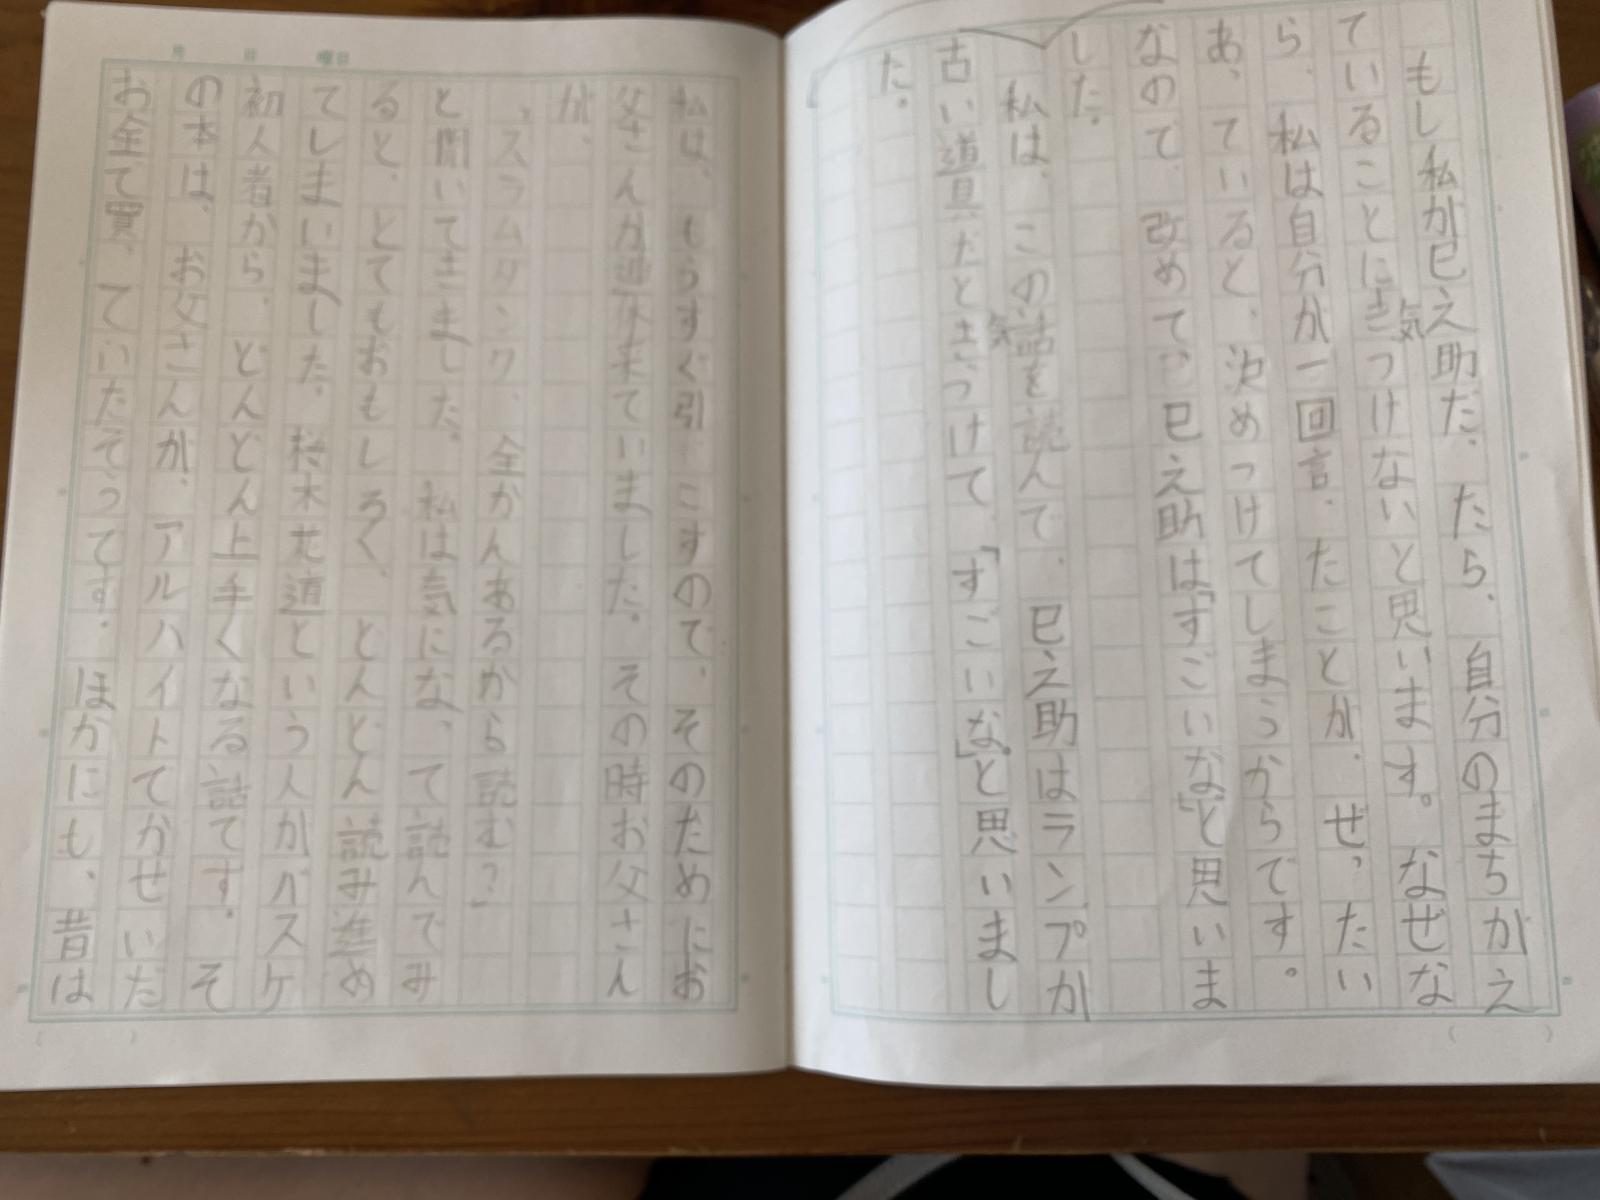 もし私が巳之助だったら、自分のまちがえ
ていることに気づけないと思います。なぜな
ら、私は自分が一回言ったことが、ぜったい
あっていると、決めつけてしまうからです。
なので、改めて、巳之助は「すごいな」と思いま
した。
私は、この話を読んで、巳之助はランプが
古い道具だと気づけて、「すごいな」と思いまし
た。
月 日 曜日
私は、もうすぐ引っこすので、そのためにお
父さんが週休来ていました。その時お父さん
が、
「スラムダンク、全かんあるから読む？」
と聞いてきました。私は気になって読んでみ
ると、とてもおもしろく、どんどん読み進め
てしまいました。桜木花道という人がバスケ
初人者から、どんどん上手くなる話です。そ
の本は、お父さんが、アルバイトでかせいだ
お金で買っていたそうです。ほかにも、昔は